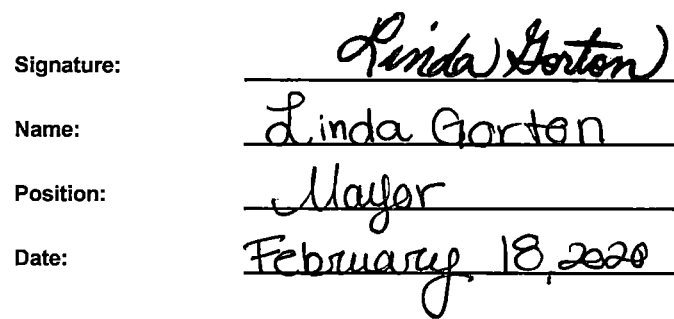 Signature: Linda Gorton
Name: Linda Gorton
Position: Mayor
Date: February 18, 2020